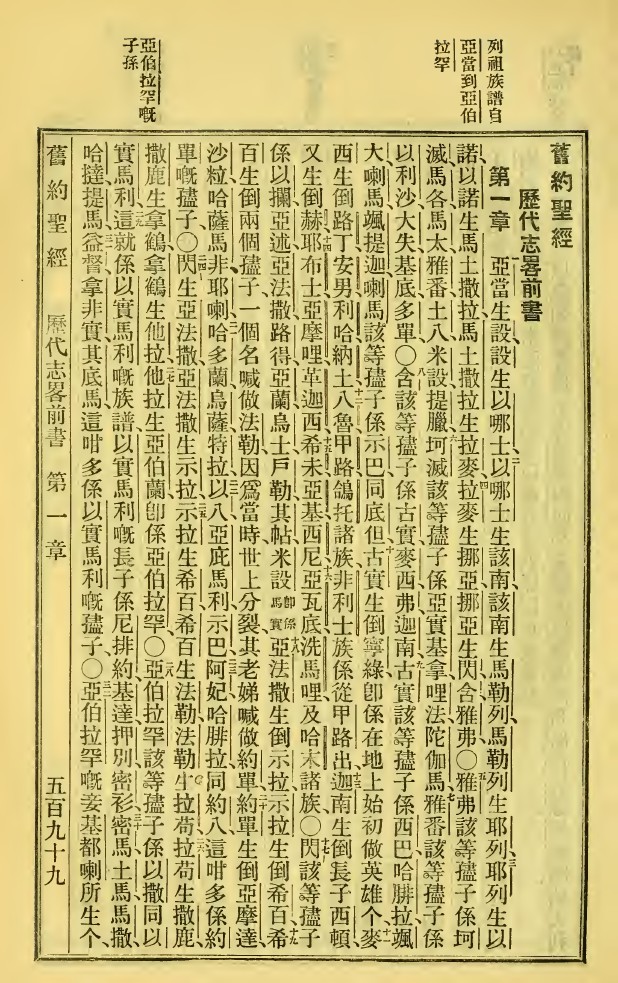 列祖族譜自
亞當到亞伯
拉罕
亞伯拉罕嘅
子孫
舊約聖經
歷代志畧前書
第一章
亞當生設設生以哪士以哪士生該南該南生馬勒列馬勒列生耶列耶列生以
諾以諾生馬土撒拉馬土撒拉生拉麥拉麥生挪亞挪亞生閃含雅弗〇雅弗該等孻子係坷
滅馬各馬太雅番土八米設提臘坷滅該等孻子係亞實基拿哩法陀伽馬雅番該等孻子係
以利沙大失基底多單〇含該等孻子係古實麥西弗迦南古實該等孻子係西巴哈腓拉颯
大喇馬颯提迦喇馬該等孻子係示巴同底但古實生倒寧綠卽係在地上始初做英雄个麥
西生倒路丁安男利哈納土八魯甲路鴿托諸族非利士族係從甲路出迦南生倒長子西頓
又生倒赫耶布士亞摩哩革迦西希未亞基西尼亞瓦底洗馬哩及哈末諸族〇閃該等孻子
係以攔亞述亞法撒路得亞蘭烏士戶勒其帖米設卽係馬實亞法撒生倒示拉示拉生倒希百希
百生倒兩個孻子一個名喊做法勒因爲當時世上分裂其老娣喊做約單約單生倒亞摩達
沙粒哈薩馬非耶喇哈多蘭烏薩特拉以八亞庇馬利示巴阿妃哈腓拉同約八這咁多係約
單嘅孻子〇閃生亞法撒亞法撒生示拉示拉生希百希百生法勒法勒生拉苟拉苟生撒鹿
撒鹿生拿鶴拿鶴生他拉他拉生亞伯蘭卽係亞伯拉罕〇亞伯拉罕該等孻子係以撒同以
實馬利這就係以實馬利嘅族譜以實馬利嘅長子係尼排約基達押別密衫密馬土馬馬撒
哈撻提馬益督拿非實其底馬這咁多係以實馬利嘅孻子〇亞伯拉罕嘅妾基都喇所生个
舊約聖經
歷代志畧前書
第一章
五百九十九